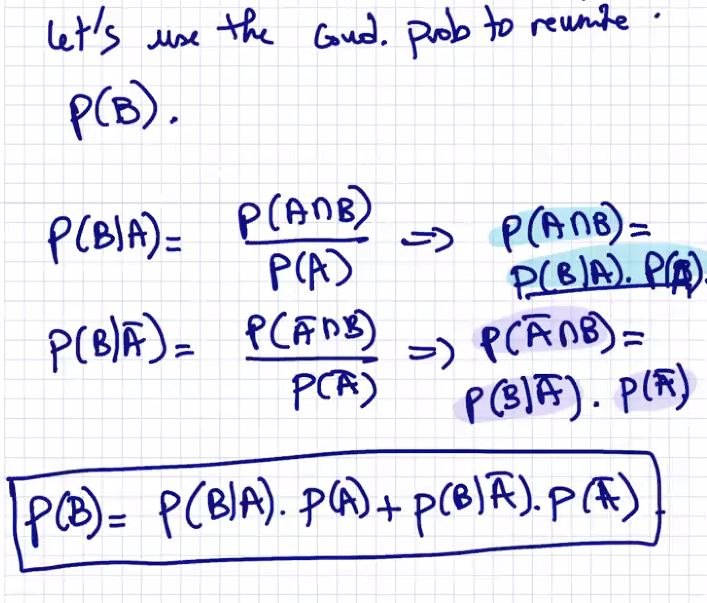 let's use the cond. prob to rewrite.
P(B).
P(B|A) = P(A∩B) / P(A) => P(A∩B) =
P(B|A). P(A).
P(B|Ā) = P(Ā∩B) / P(Ā) => P(Ā∩B) =
P(B|Ā). P(Ā)
P(B) = P(B|A). P(A) + P(B|Ā). P(Ā).